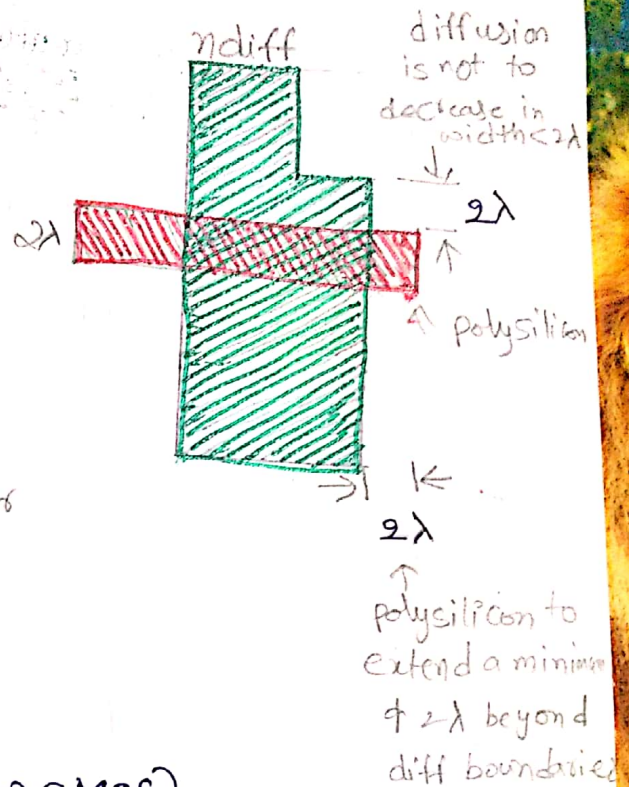 ndiff
diffusion
is not to
decrease in
width < 2λ
2λ
2λ
polysilicon
2λ
polysilicon to
extend a minimum
of 2λ beyond
diff boundaries